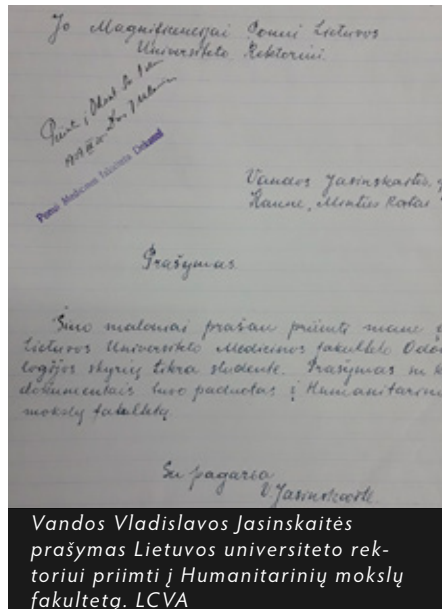 Jo Magnificencijai Ponui Lietuvos
Universiteto Rektoriui.
Priimta į Odont. Sk.
Ponui Medicinos Fakulteto Dekanui
Vandos Jasinskaitės,
Kaune, Minties Ratas
Prašymas.
Šiuo maloniai prašau priimti mane į
Lietuvos Universiteto Medicinos fakulteto Odon
logijos skyrių tikra studente. Prašymas su
dokumentais buvo paduotas į Humanitarinių
mokslų fakultetą.
Su pagarba
V. Jasinskaitė.
Vandos Vladislavos Jasinskaitės
prašymas Lietuvos universiteto rek-
toriui priimti į Humanitarinių mokslų
fakultetą. LCVA